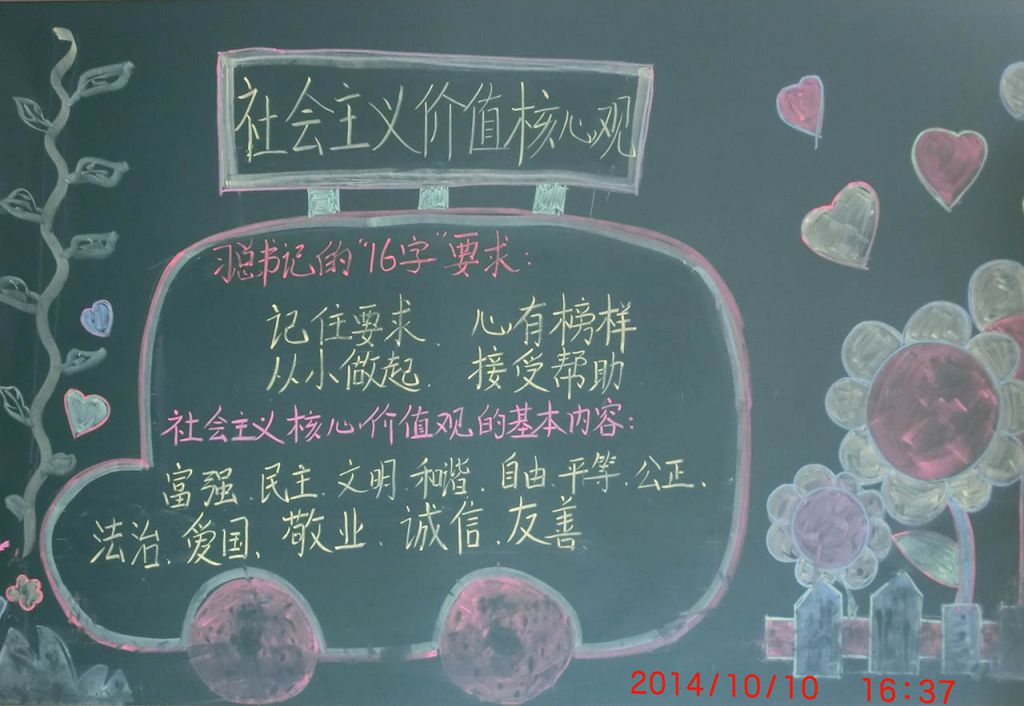 社会主义价值核心观
习总书记的“16字”要求:
记住要求、心有榜样
从小做起、接受帮助
社会主义核心价值观的基本内容:
富强、民主、文明、和谐、自由、平等、公正、
法治、爱国、敬业、诚信、友善、
2014/10/10 16:37